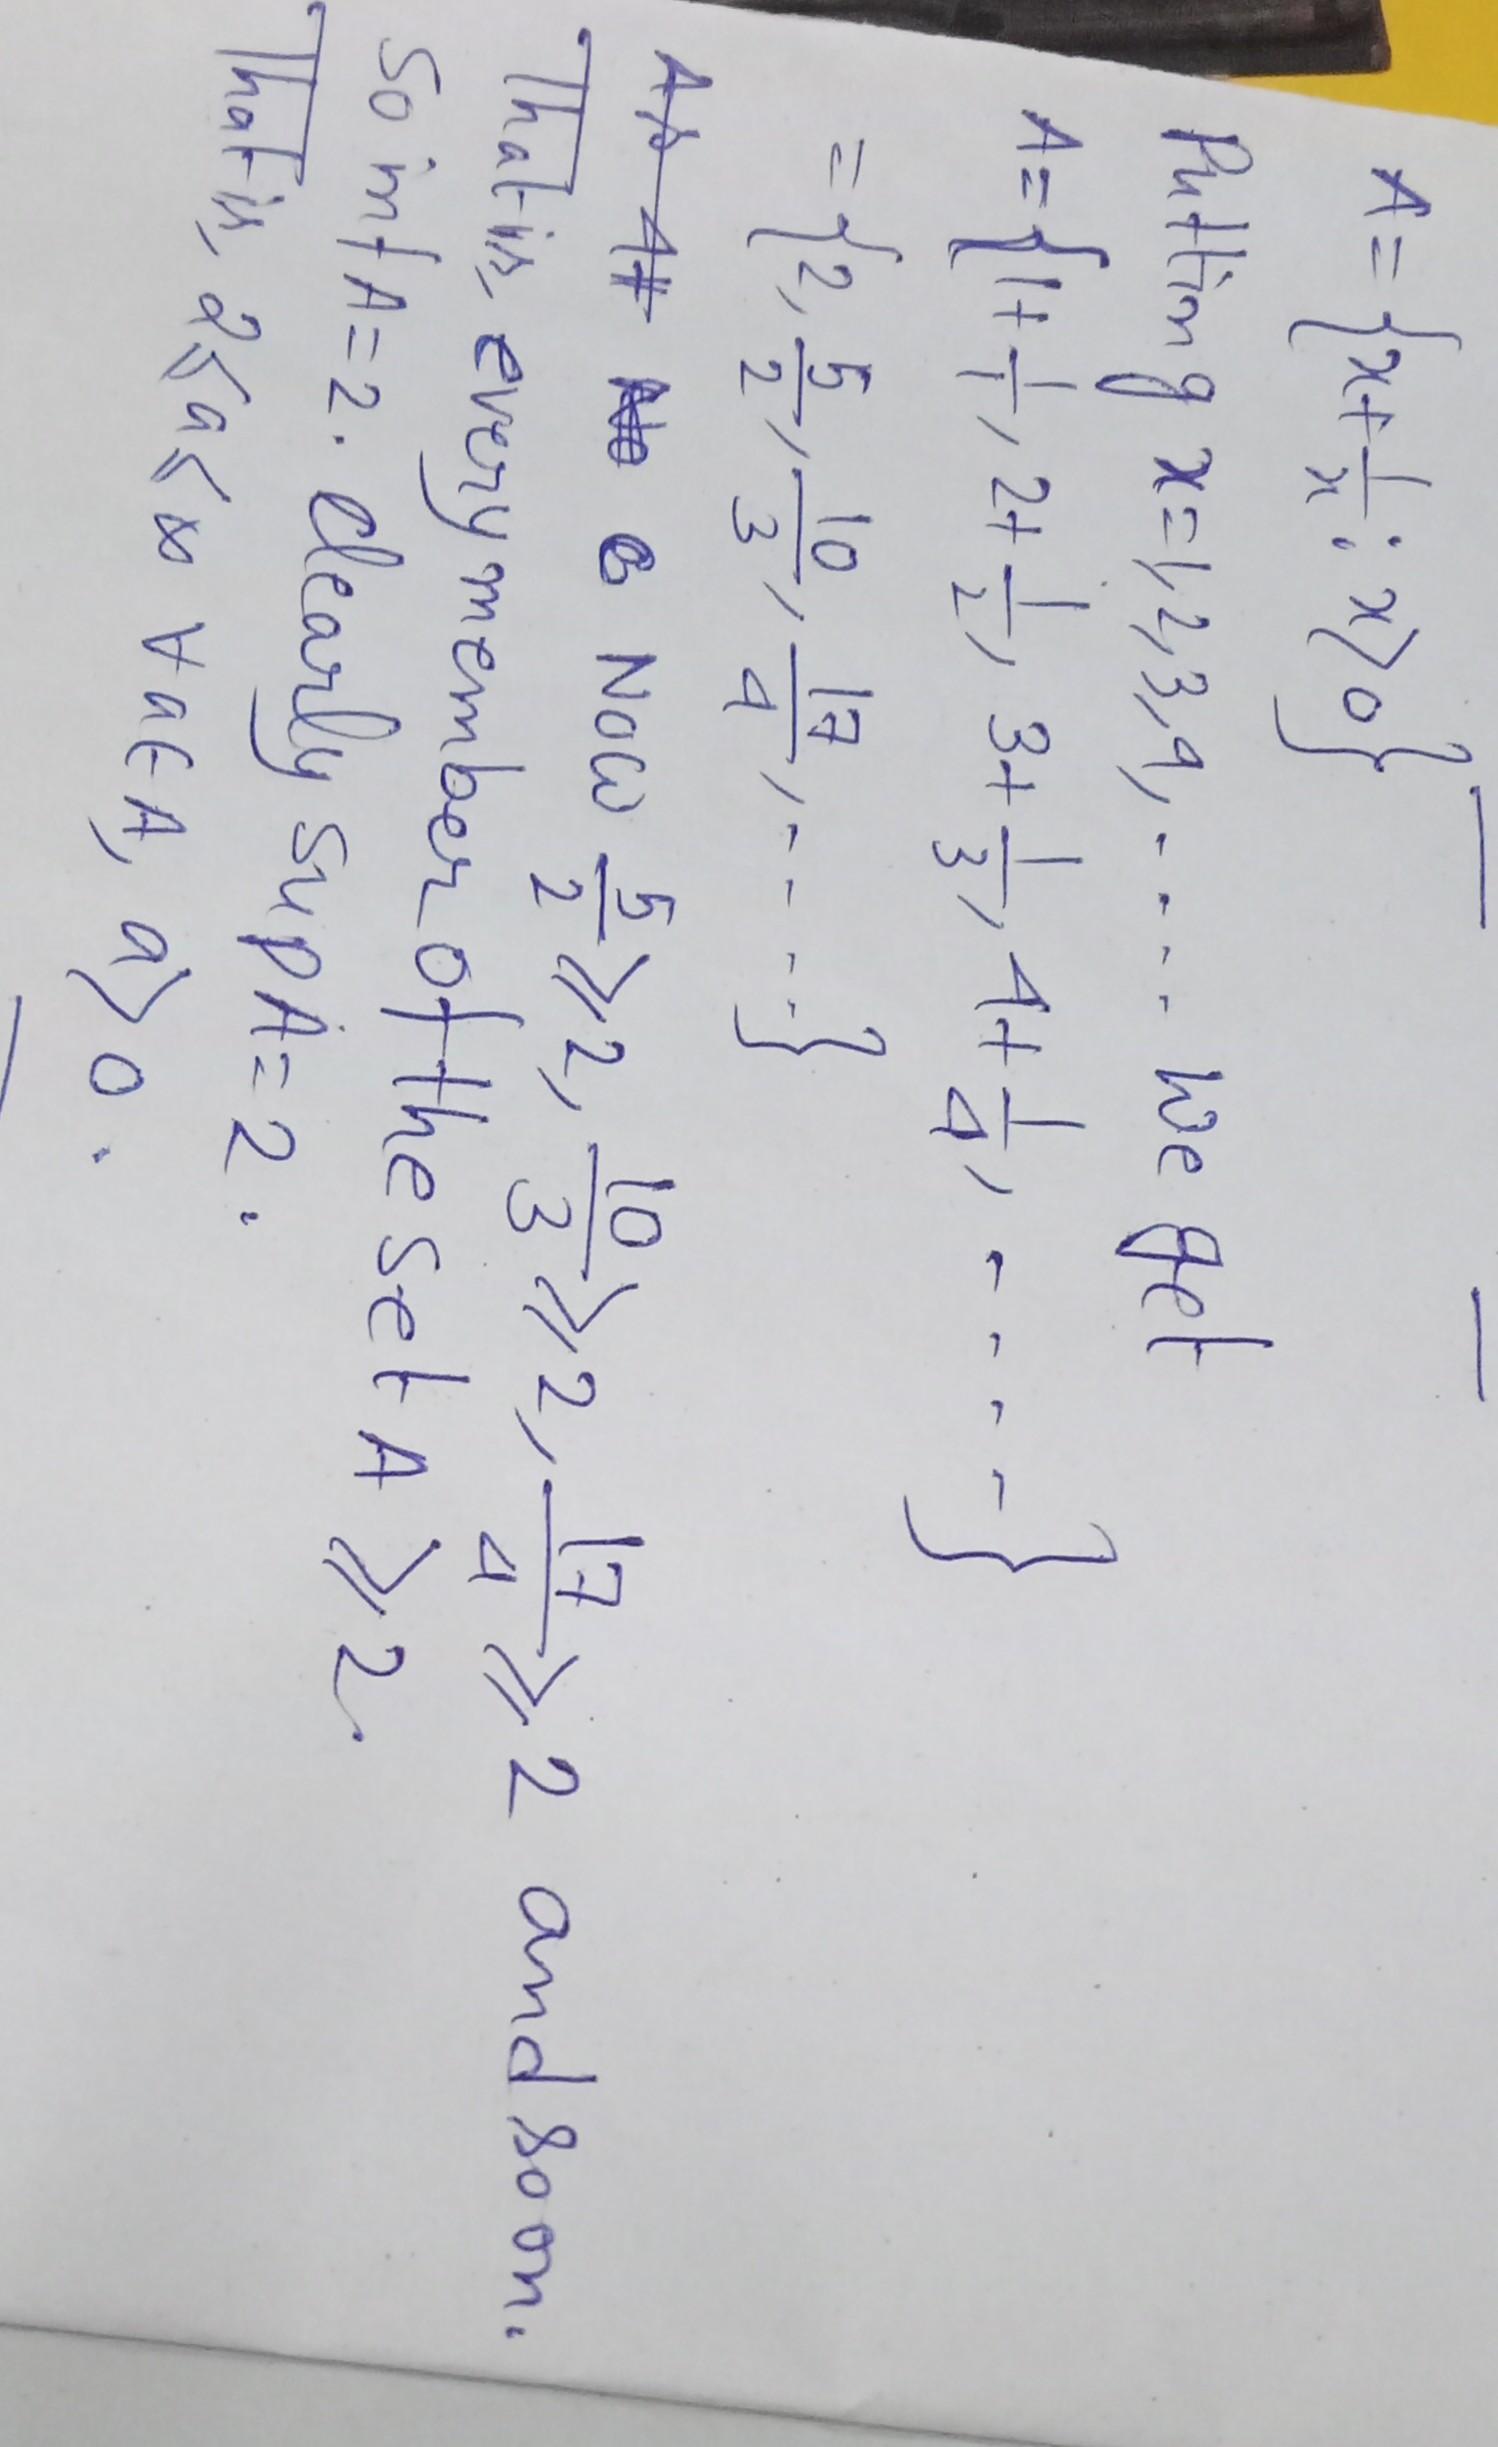 A = {x + 1/x : x > 0}
Putting x = 1, 2, 3, 4, .... we get
A = {1 + 1/1, 2 + 1/2, 3 + 1/3, 4 + 1/4, .....}
= {2, 5/2, 10/3, 17/4, .....}
Now 5/2 ⩾ 2, 10/3 ⩾ 2, 17/4 ⩾ 2 and so on.
That is, every member of the set A ⩾ 2.
So inf A = 2. Clearly sup A = 2.
That is, 2 ⩽ a < ∞ ∀ a ∈ A, a > 0.